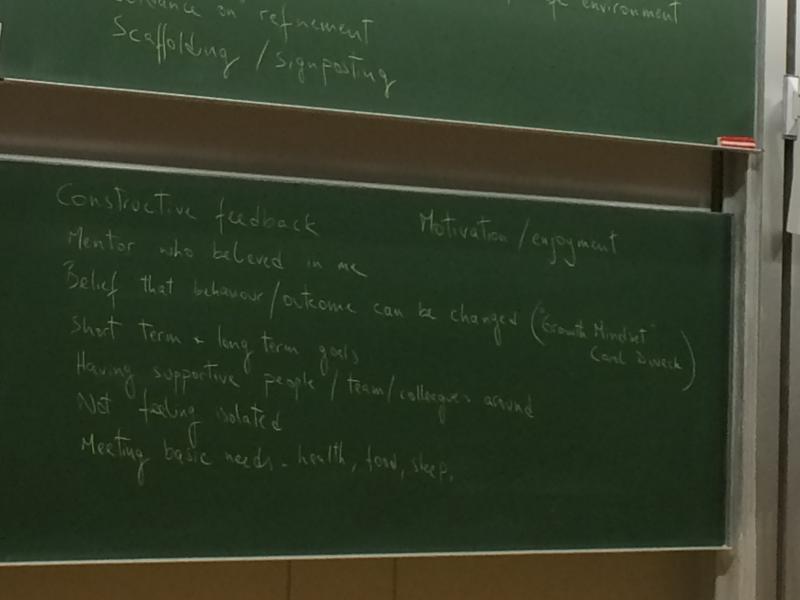 on refinement
environment
Scaffolding / signposting
Constructive feedback Motivation / enjoyment
Mentor who believed in me
Belief that behaviour / outcome can be changed ("Growth Mindset"
Carol Dweck)
Short term + long term goals
Having supportive people / team / colleagues around
Not feeling isolated
Meeting basic needs - health, food, sleep,